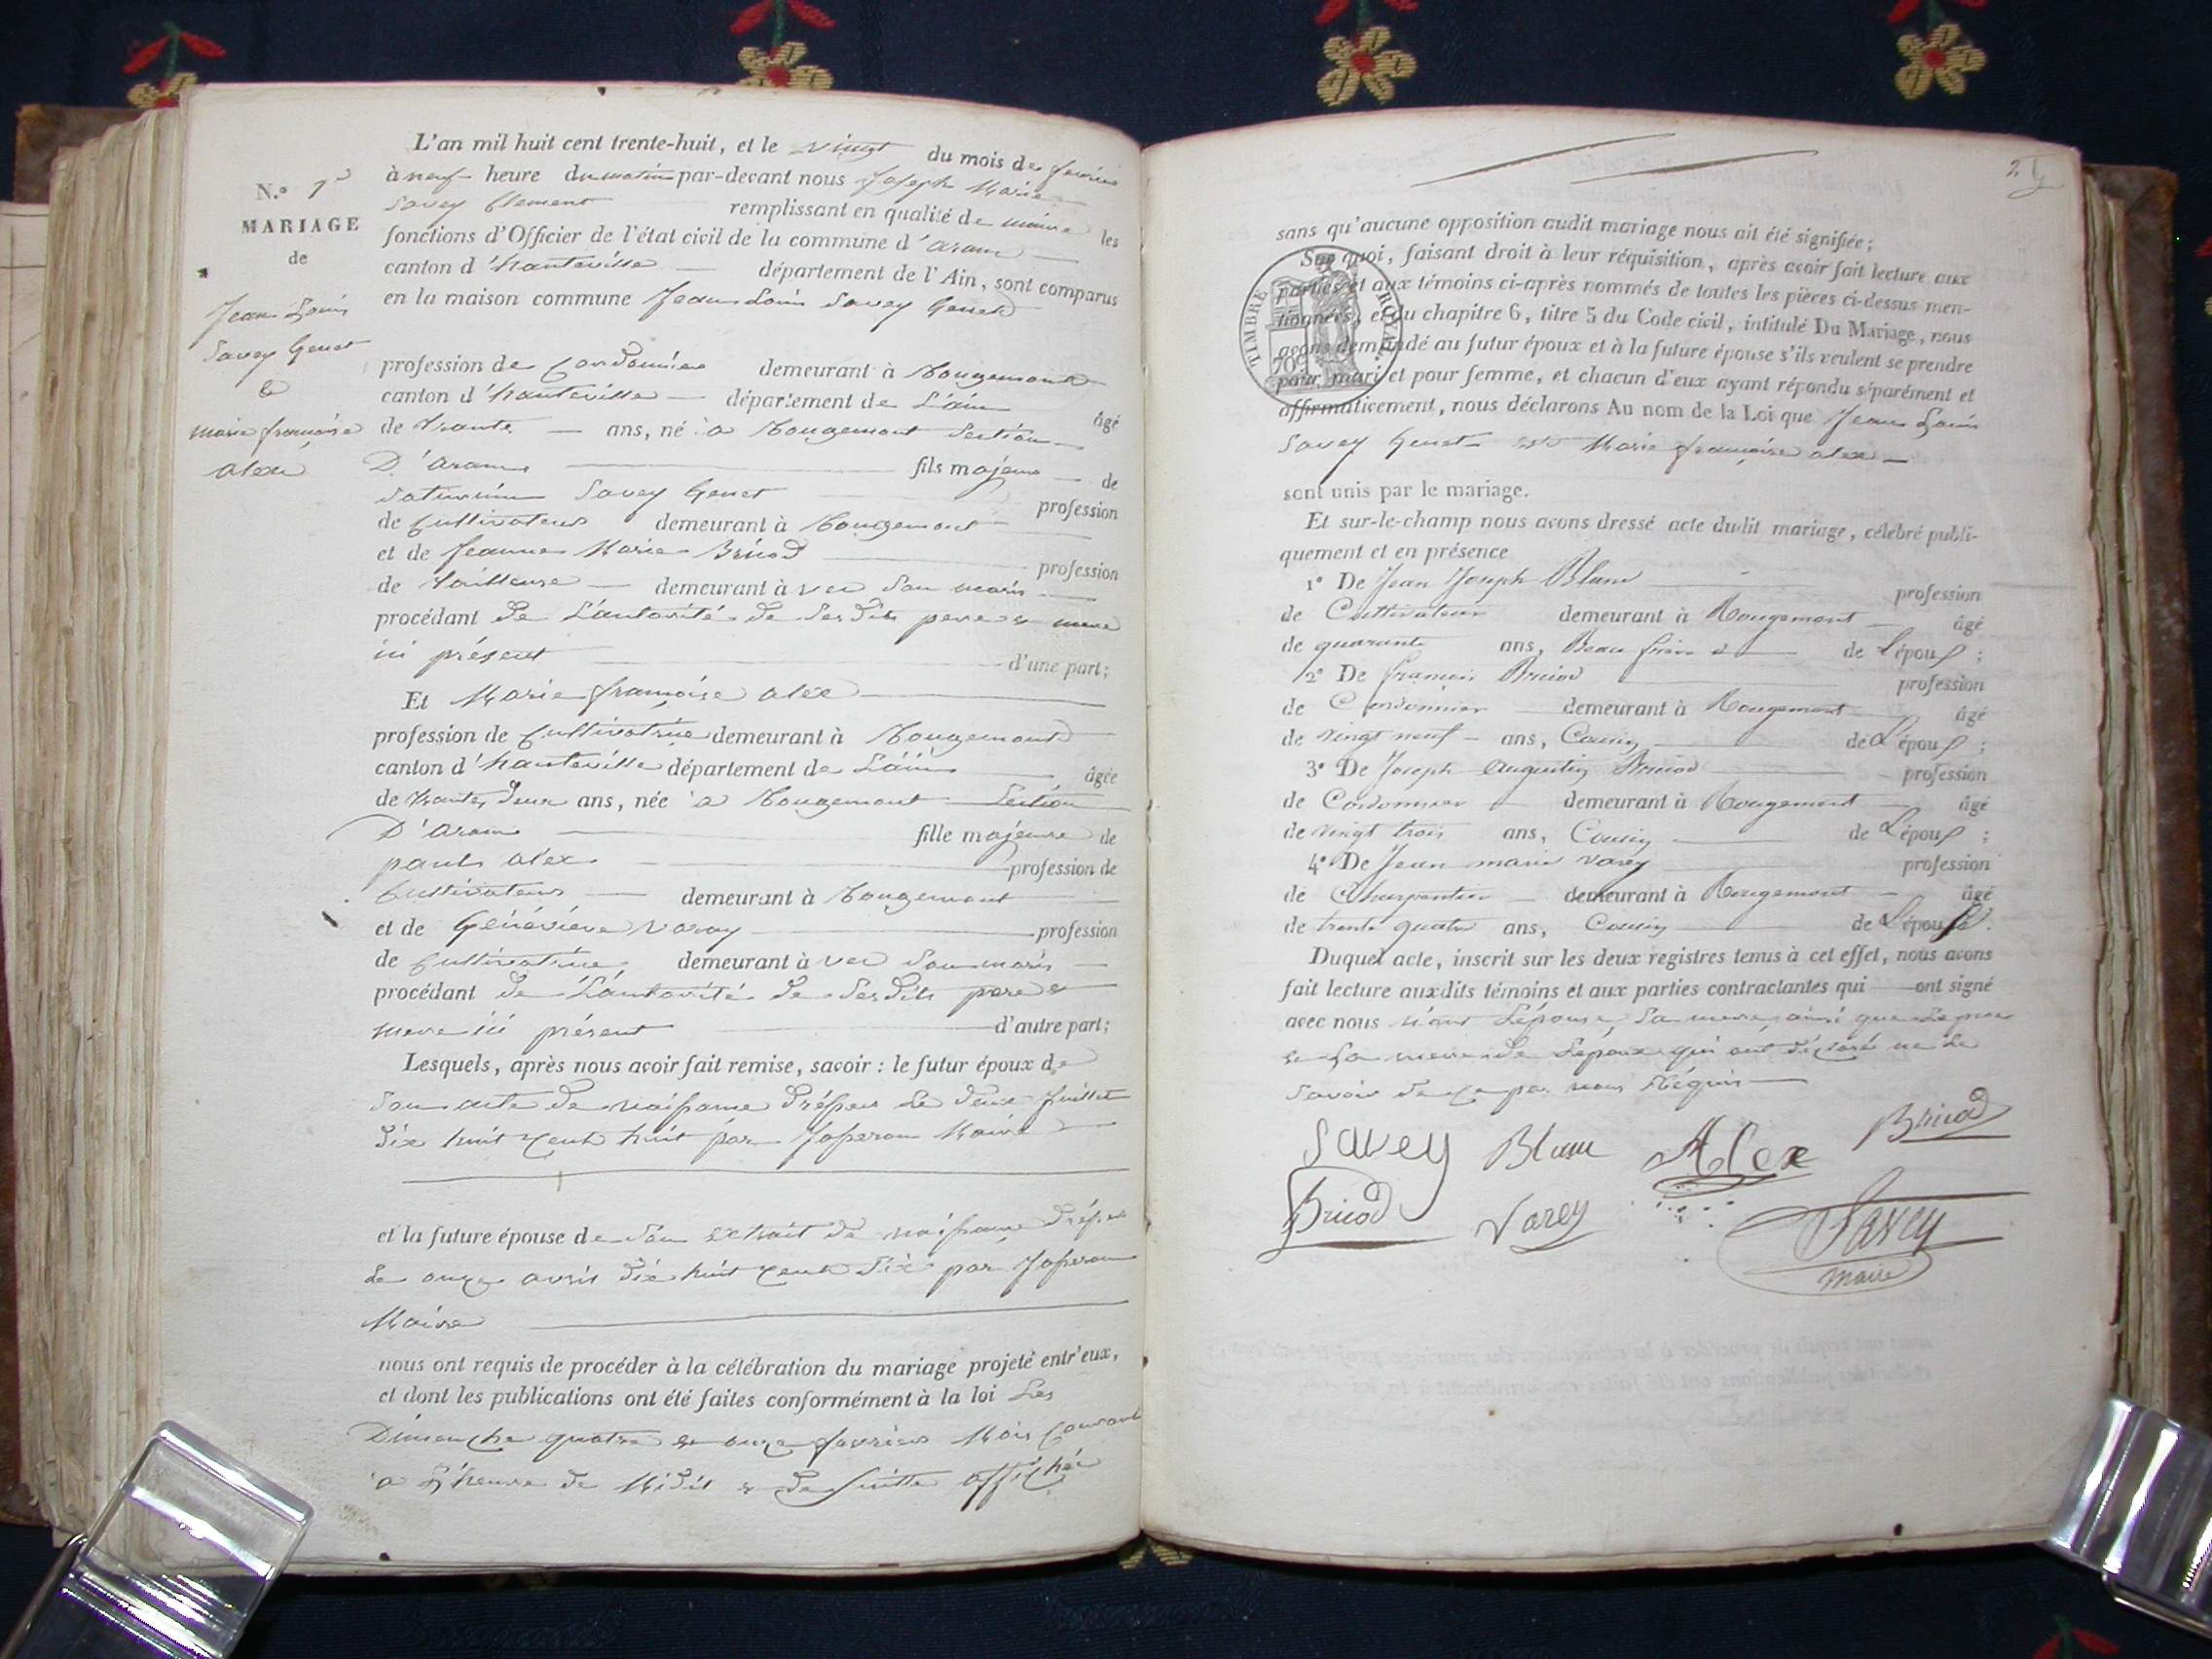 L'an mil huit cent trente-huit, et le vingt du mois de fevrier
à neuf heure du matin par-devant nous Joseph Marie
Savey Clement remplissant en qualité de maire les
fonctions d'Officier de l'état civil de la commune d'aranc
canton d'hauteville département de l'Ain, sont comparus
en la maison commune Jean Louis Savey Genet
N.o 7
MARIAGE
de
Jean Louis
Savey Genet
&
marie françoise
alex
profession de Cordonnier demeurant à Rougemont
canton d'hauteville département de L'ain âgé
de trante ans, né a Rougemont Section
D'aranc fils majeur de
Saturnin Savey Genet profession
de Cultivateur demeurant à Rougemont
et de Jeanne Marie Bruod profession
de tailleuse demeurant à vec Son maris
procédant de L'autorité de Ses dits pere & mere
ici présent d'une part;
Et Marie françoise alex
profession de Cultivatrice demeurant à Rougemont
canton d'hauteville département de L'ain âgée
de trante deux ans, née a Rougemont Section
D'aranc fille majeure de
paul alex profession de
Cultivateur demeurant à Rougemont
et de Généviéve Varey profession
de Cultivatrice demeurant à vec Son maris
procédant de L'autorité de Ses dits pere &
mere ici présent d'autre part;
Lesquels, après nous avoir fait remise, savoir : le futur époux de
Son acte de naissance dréssée Le deux Juillet
dix huit cent huit par Maire
et la future épouse de Son extrait de naissance dréssée
Le onze avril dix huit cent Six par
Maire
nous ont requis de procéder à la célébration du mariage projeté entr'eux,
et dont les publications ont été faites conformément à la loi Les
Dimenche quatre & onze fevrier Mois Courant
a L'heure de Midit & de Suitte affiché
2
sans qu'aucune opposition audit mariage nous ait été signifiée;
Sur quoi, faisant droit à leur réquisition, après avoir fait lecture aux
parties et aux témoins ci-après nommés de toutes les pièces ci-dessus men-
tionnées, et du chapitre 6, titre 5 du Code civil, intitulé Du Mariage, nous
avons demandé au futur époux et à la future épouse s'ils veulent se prendre
pour mari et pour femme, et chacun d'eux ayant répondu séparément et
affirmativement, nous déclarons Au nom de la Loi que Jean Louis
Savey Genet Marie françoise alex
TIMBRE ROYAL
sont unis par le mariage.
Et sur-le-champ nous avons dressé acte dudit mariage, célébré publi-
quement et en présence
1o De Jean Joseph Blanc profession
de Cultivateur demeurant à Rougemont âgé
de quarante ans, Beau frère de L'époux;
2o De francois Bruod profession
de Cordonnier demeurant à Rougemont âgé
de vingt neuf ans, Cousin de L'époux;
3o De Joseph Augustin Bruod profession
de Cordonnier demeurant à Rougemont âgé
de vingt trois ans, Cousin de L'époux;
4o De Jean marie varey profession
de Charpentier demeurant à Rougemont âgé
de trente quatre ans, Cousin de L'épouse.
Duquel acte, inscrit sur les deux registres tenus à cet effet, nous avons
fait lecture auxdits témoins et aux parties contractantes qui ont signé
avec nous L'épouse, Sa mere, ainsi que Le pere
& La mere de L'époux qui ont déclaré ne Le
Savoir de Ce par nous Réquis
Savey Blanc Alex Bruod
Bruod Varey Savey
maire